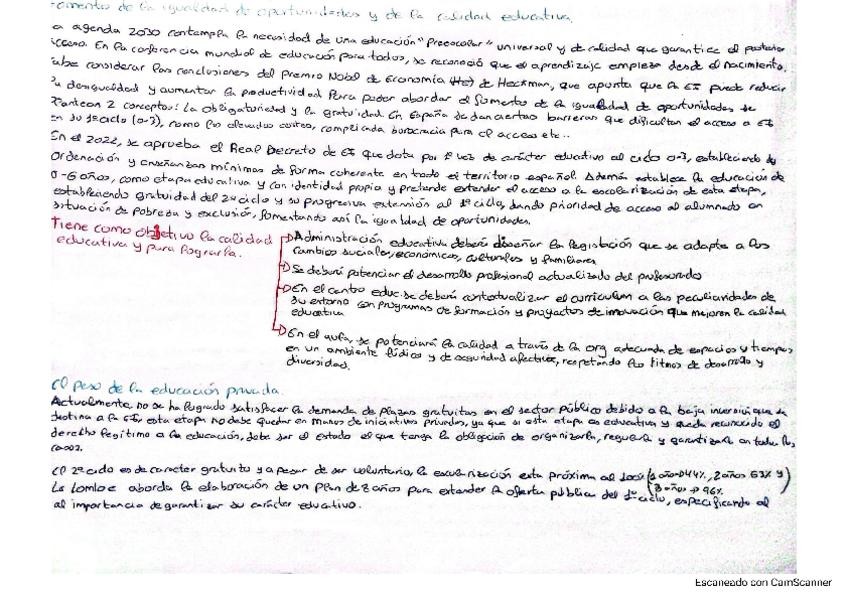 omento de la igualdad de oportunidades y de la calidad educativa.
a agenda 2030 contempla la necesidad de una educación "Preescolar" universal y de calidad que garantice el posterior
acceso. En la conferencia mundial de educación para todos, se reconoció que el aprendizaje empieza desde el nacimiento.
abe considerar las conclusiones del Premio Nobel de Economía de Heckman, que apunta que la EI puede reducir
la desigualdad y aumentar la productividad. Para poder abordar el fomento de la igualdad de oportunidades se
Plantean 2 conceptos: la obligatoriedad y la gratuidad. En España se dan ciertas barreras que dificultan el acceso a EI
en su 1º ciclo (0-3), como los elevados costes, complicada burocracia para el acceso etc..
En el 2022, se aprueba el Real Decreto de EI que dota por 1ª vez de carácter educativo al ciclo 0-3, estableciendo
Ordenación y enseñanzas mínimas de forma coherente en todo el territorio español. Además establece la educación de
0-6 años, como etapa educativa y con identidad propia y pretende extender el acceso a la escolarización de esta etapa,
estableciendo gratuidad del 2º ciclo y su progresiva extensión al 1º ciclo, dando prioridad de acceso al alumnado en
situación de pobreza y exclusión, fomentando así la igualdad de oportunidades.
Tiene como objetivo la calidad
educativa y para lograrla.
Administración educativa deberá diseñar la legislación que se adapte a los
cambios sociales, económicos, culturales y familiares
Se deberá potenciar el desarrollo profesional actualizado del profesorado
En el centro educ. se deberá contextualizar el curriculum a las peculiaridades de
su entorno con programas de formación y proyectos de innovación que mejoren la calidad
educativa
En el aula, se potenciará la calidad a través de la org adecuada de espacios y tiempos
en un ambiente lúdico y de seguridad afectiva, respetando los ritmos de desarrollo y
diversidad.
El peso de la educación privada.
Actualmente, no se ha logrado satisfacer la demanda de plazas gratuitas en el sector público debido a la baja inversión que se
destina a la EI, esta etapa no debe quedar en manos de iniciativas privadas, ya que si esta etapa es educativa y queda reconocido el
derecho legítimo a la educación, debe ser el estado el que tenga la obligación de organizarla, regularla y garantizarla en todos los
casos.
El 2º ciclo es de carácter gratuito y a pesar de ser voluntario, la escolarización esta próxima al 100% (1 año → 44%, 2 años 63% y
3 años → 96%)
La Lomloe aborda la elaboración de un plan de 8 años para extender la oferta pública del 1º ciclo, especificando al
al importancia de garantizar su carácter educativo.
Escaneado con CamScanner